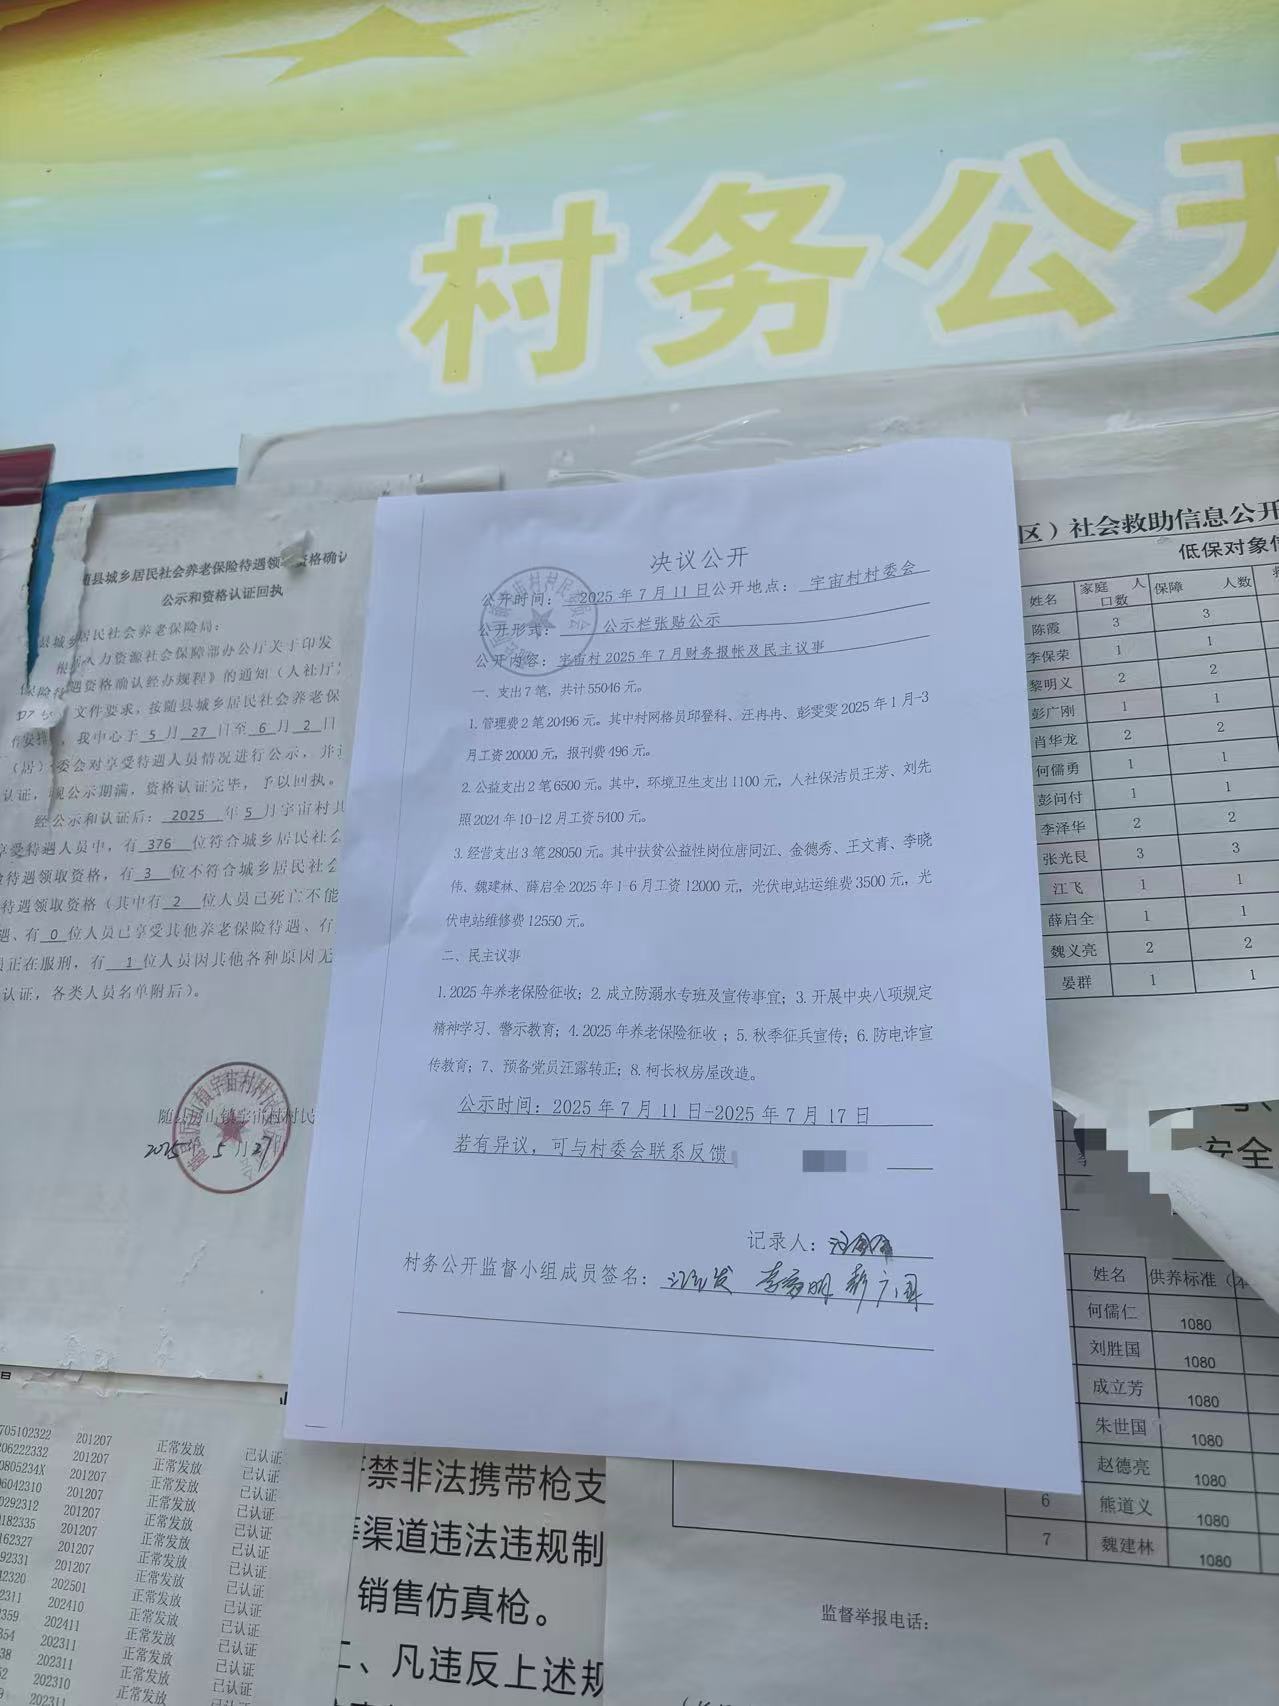 村务公开
决议公开
公开时间：2025年7月11日公开地点：宇宙村村委会
公开形式：公示栏张贴公示
公开内容：宇宙村2025年7月财务报帐及民主议事
一、支出7笔，共计55046元。
1.管理费2笔20496元。其中村网格员邱登科、汪冉冉、彭雯雯2025年1月-3
月工资20000元，报刊费496元。
2.公益支出2笔6500元。其中，环境卫生支出1100元，人社保洁员王芳、刘先
照2024年10-12月工资5400元。
3.经营支出3笔28050元。其中扶贫公益性岗位唐同江、金德秀、王文青、李晓
伟、魏建林、薛启全2025年1-6月工资12000元，光伏电站运维费3500元，光
伏电站维修费12550元。
二、民主议事
1.2025年养老保险征收；2.成立防溺水专班及宣传事宜；3.开展中央八项规定
精神学习、警示教育；4.2025年养老保险征收；5.秋季征兵宣传；6.防电诈宣
传教育；7、预备党员汪露转正；8.柯长权房屋改造。
公示时间：2025年7月11日-2025年7月17日
若有异议，可与村委会联系反馈
记录人：
村务公开监督小组成员签名：
随县城乡居民社会养老保险待遇领 资格确认
公示和资格认证回执
县城乡居民社会养老保险局：
根 人力资源社会保障部办公厅关于印发
保险待遇资格确认经办规程》的通知（人社厅
文件要求，按随县城乡居民社会养老保
，我中心于5月27日至6月2日
（居）委会对享受待遇人员情况进行公示，并
认证，现公示期满，资格认证完毕，予以回执。
经公示和认证后：2025年5月宇宙村共
享受待遇人员中，有376位符合城乡居民社会
待遇领取资格，有3位不符合城乡居民社会
待遇领取资格（其中有2位人员已死亡不能
遇、有0位人员已享受其他养老保险待遇、有
员正在服刑，有1位人员因其他各种原因无
认证，各类人员名单附后）。
2025年5月27日
区）社会救助信息公开
低保对象
姓名 家庭人口数 保障人数
陈霞 3 3
李保荣 1 1
黎明义 2 2
彭广刚 1 1
肖华龙 2 2
何儒勇 1 1
彭问付 1 1
李泽华 2 2
张光艮 3 3
江飞 1 1
薛启全 1 1
魏义亮 2 2
晏群 1 1
安全
姓名 供养标准
何儒仁 1080
刘胜国 1080
成立芳 1080
朱世国 1080
赵德亮 1080
6 熊道义 1080
7 魏建林 1080
监督举报电话：
705102322 201207 正常发放 已认证
206222332 201207 正常发放 已认证
0805234X 201207 正常发放 已认证
06042310 201207 正常发放 已认证
0292312 201207 正常发放 已认证
182335 201207 正常发放 已认证
162327 201207 正常发放 已认证
92331 201207 正常发放 已认证
2320 202501 正常发放 已认证
2311 202410 正常发放 已认证
359 202411 正常发放 已认证
354 202311 正常发放 已认证
38 202311 正常发放 已认证
202310 正常发放
202311
禁非法携带枪支
渠道违法违规制
销售仿真枪。
二、凡违反上述规